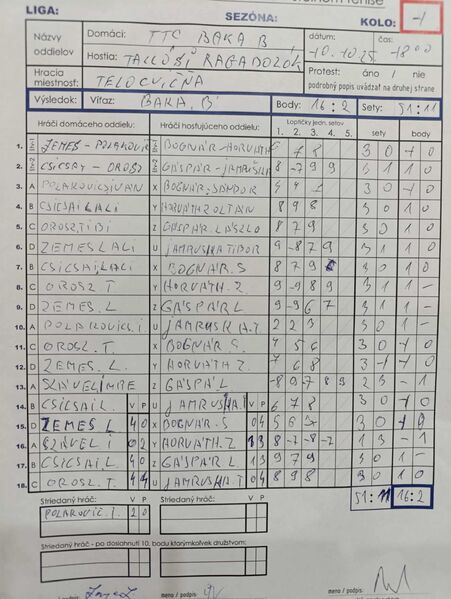 LIGA:
SEZÓNA: KOLO: -1
Názvy oddielov Domáci: TTC BAKA B dátum: čas:
Hostia: TALLÓŠI RAGADOZÓK 10.10.25 18 00
Hracia miestnosť: TELOCVIČŇA Protest: áno / nie
podrobný popis uvádzať na druhej strane
Výsledok: Víťaz: BAKA,B' Body: 16:2 Sety: 51:11
Hráči domáceho oddielu: Hráči hosťujúceho oddielu: Loptičky jedn. setov sety body
1. 2. 3. 4. 5.
1. ZEMES-POLAKOVIČ BOGNÁR-HORVÁTH 7 8 3 0 1 0
2. CSICSAY-OROSZ GÁSPÁR-JAMRUŠKA 8 -7 9 9 3 1 1 0
3. A POLAKOVICS IVAN X BOGNÁR SÁNDOR 3 0 1 0
4. B CSICSAI LALI Y HORVÁTH ZOLTÁN 8 9 8 3 0 1 0
5. C OROSZ TIDI Z GÁSPÁR LÁSZLÓ 8 7 9 3 0 1 0
6. D ZEMES LALI U JAMRUSKA TIBOR 9 -8 7 9 3 1 1 0
7. B CSICSAI LALI X BOGNÁR.S 8 7 9 3 0 1 0
8. C OROSZ T Y HORVÁTH.Z 9 -9 8 9 3 1 1 -
9. D ZEMES.L Z GÁSPÁR L 9 -9 6 7 3 1 1 -
10. A POLAKOVICS.I U JAMRUSKA.T 2 2 3 3 0 1 -
11. C OROSZ.T. X BOGNÁR S. 4 5 6 3 0 1 -
12. D ZEMES.L. Y HORVÁTH Z 7 6 8 3 0 1 0
13. A SZÁVEL IMRE Z GÁSPÁR L -8 9 -7 8 -9 2 3 - 1
14. B CSICSAI L. V P U JAMRUSKA V P 6 7 8 3 0 1 0
15. D ZEMES L 4 0 X BOGNÁR S 0 4 5 6 3 3 0 1 0
16. A SZÁVEL I 0 2 Y HORVÁTH.Z 8 -7 -8 -7 1 3 - 1
17. B CSICSAI.L. 4 0 Z GÁSPÁR L 1 3 9 7 9 3 0 1 0
18. C OROSZ.T. U JAMRUSKA T 0 4 8 9 8 3 0 1 0
Striedaný hráč: V P Striedaný hráč: V P 51:11 16:2
POLAKOVIČ.I. 2 0
Striedaný hráč - po dosiahnutí 10. bodu ktorýmkoľvek družstvom:
meno / podpis meno / podpis